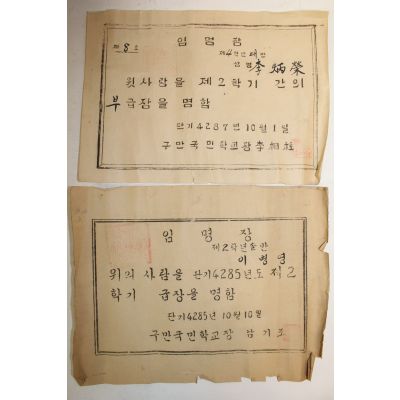 제8호
임명장
제4학년 매반
성명 李炳榮
윗사람을 제2학기 간의
부급장을 명함
단기4287년10월1일
구만국민학교장 李
임명장
제2학년솔반
이병영
위의 사람을 단기4285년도 제2
학기 급장을 명함
단기4285년 10월10일
구만국민학교장 남기조